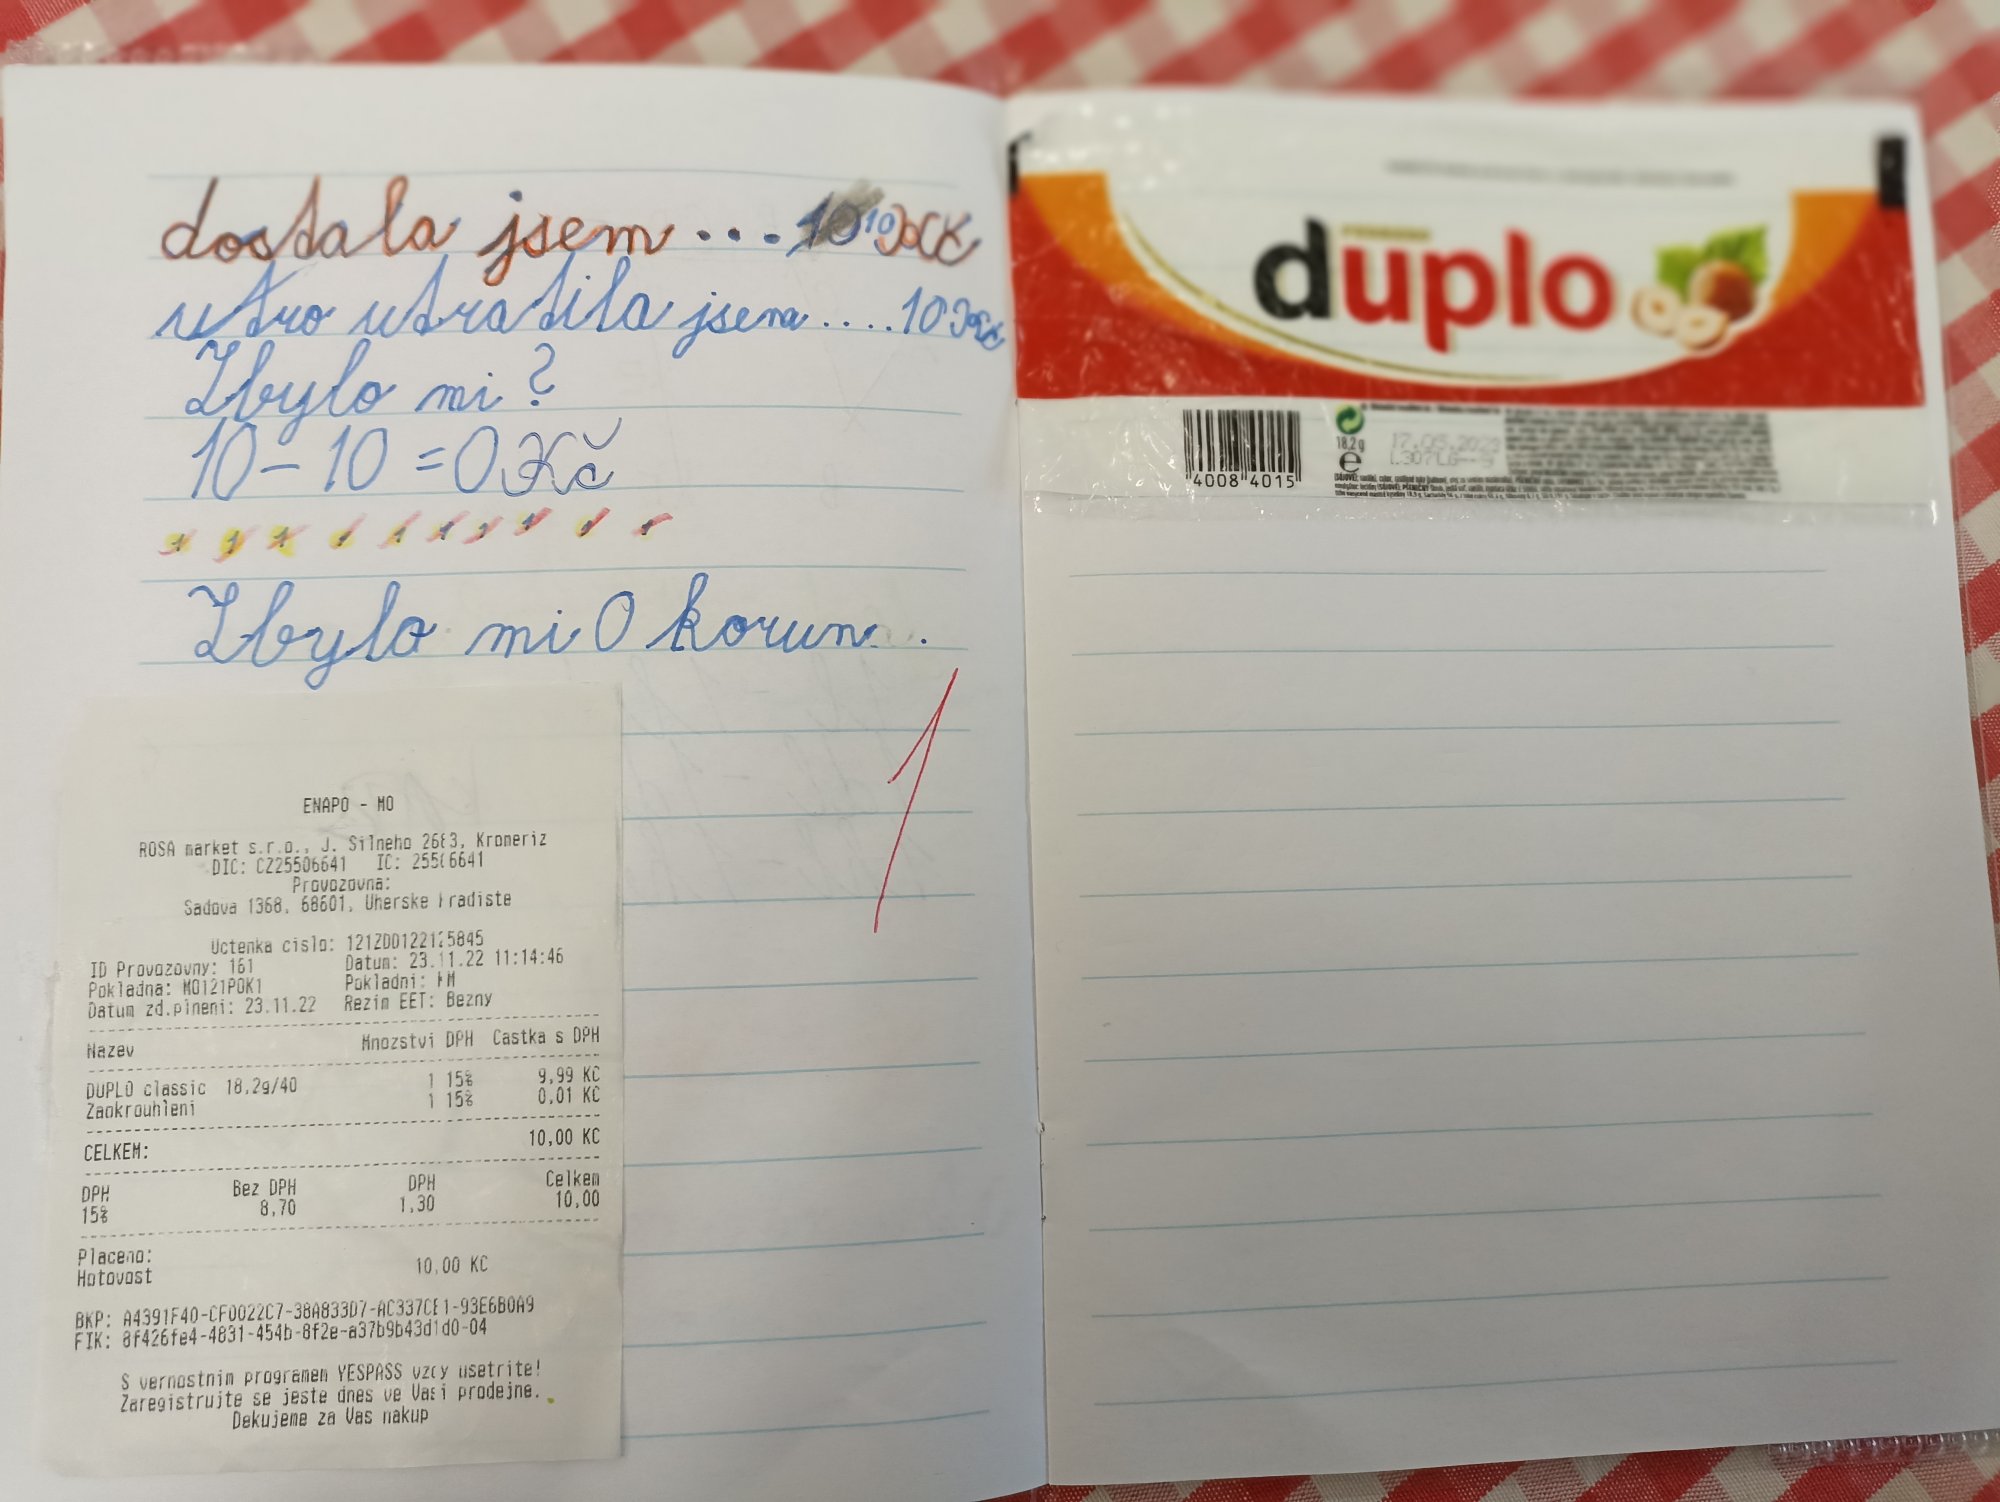 dostala jsem ... 10 10 Kč
utro utratila jsem .... 10 Kč
Zbylo mi ?
10 - 10 = 0 Kč
1 1 1 1 1 1 1 1 1 1
Zbylo mi 0 korun .
1
ENAPO - MO
ROSA market s.r.o., J. Silneho 2683, Kromeriz
DIC: CZ25506641 IC: 25506641
Provozovna:
Sadova 1368, 68601, Uherske Hradiste
Uctenka cislo: 121ZDD122125845
ID Provozovny: 161 Datum: 23.11.22 11:14:46
Pokladna: MO121POK1 Pokladni:
Datum zd.plneni: 23.11.22 Rezim EET: Bezny
Nazev Mnozstvi DPH Castka s DPH
DUPLO classic 18,2g/40 1 15% 9,99 KC
Zaokrouhleni 1 15% 0,01 KC
CELKEM: 10,00 KC
DPH Bez DPH DPH Celkem
15% 8,70 1,30 10,00
Placeno:
Hotovost 10,00 KC
BKP: A4391F40-CF0022C7-38A833D7-AC337CE1-93E6B0A9
FIK: 8f426fe4-4831-454b-8f2e-a37b9b43d1d0-04
S vernostnim programem YESPASS vzdy usetrite!
Zaregistrujte se jeste dnes ve Vasi prodejne.
Dekujeme za Vas nakup
duplo
4008 4015
18,2g
e
17.05.2023